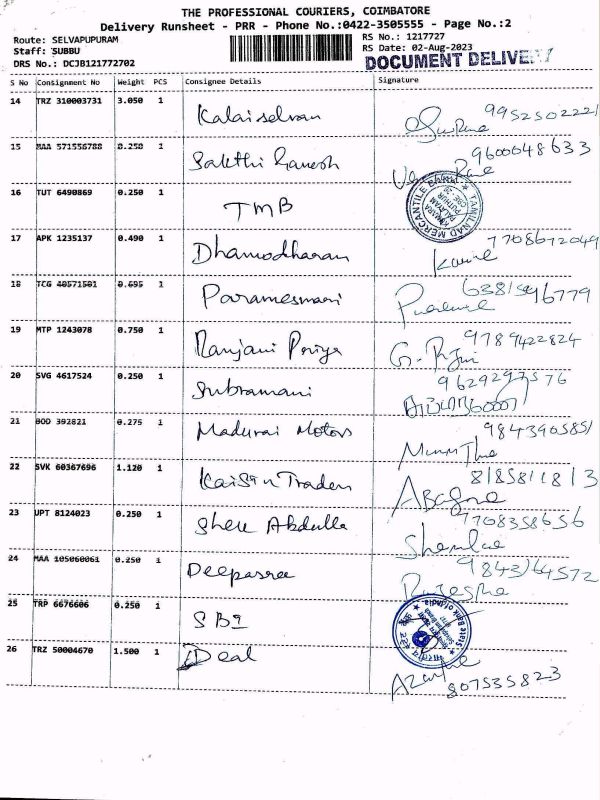 THE PROFESSIONAL COURIERS, COIMBATORE
Delivery Runsheet - PRR - Phone No.:0422-3505555 - Page No.:2
Route: SELVAPUPURAM RS No.: 1217727
Staff: SUBBU RS Date: 02-Aug-2023
DRS No.: DCJB121772702 DOCUMENT DELIVERY
S No Consignment No Weight PCS Consignee Details Signature
14 TRZ 310003731 3.050 1 Kalaiselvan 9952502221
15 MAA 571556788 0.250 1 Sakthi Ganesh 9600048633
16 TUT 6490869 0.250 1 TMB TAMILNAD MERCANTILE BANK
17 APK 1235137 0.490 1 Dhamodharan 7708672049
18 TCG 40571501 0.695 1 Parameswari
19 MTP 1243078 0.750 1 Ranjani Priya 9789422824
20 SVG 4617524 0.250 1 Subramani
21 BOD 392821 0.275 1 Madurai Motors 9843905851
22 SVK 60367696 1.120 1 8185811813
23 UPT 8124023 0.250 1 Abdulla 7708358656
24 MAA 105060061 0.250 1 Deepasree
25 TRP 6676606 0.250 1 SBI
26 TRZ 50004670 1.500 1 Deal 807535823